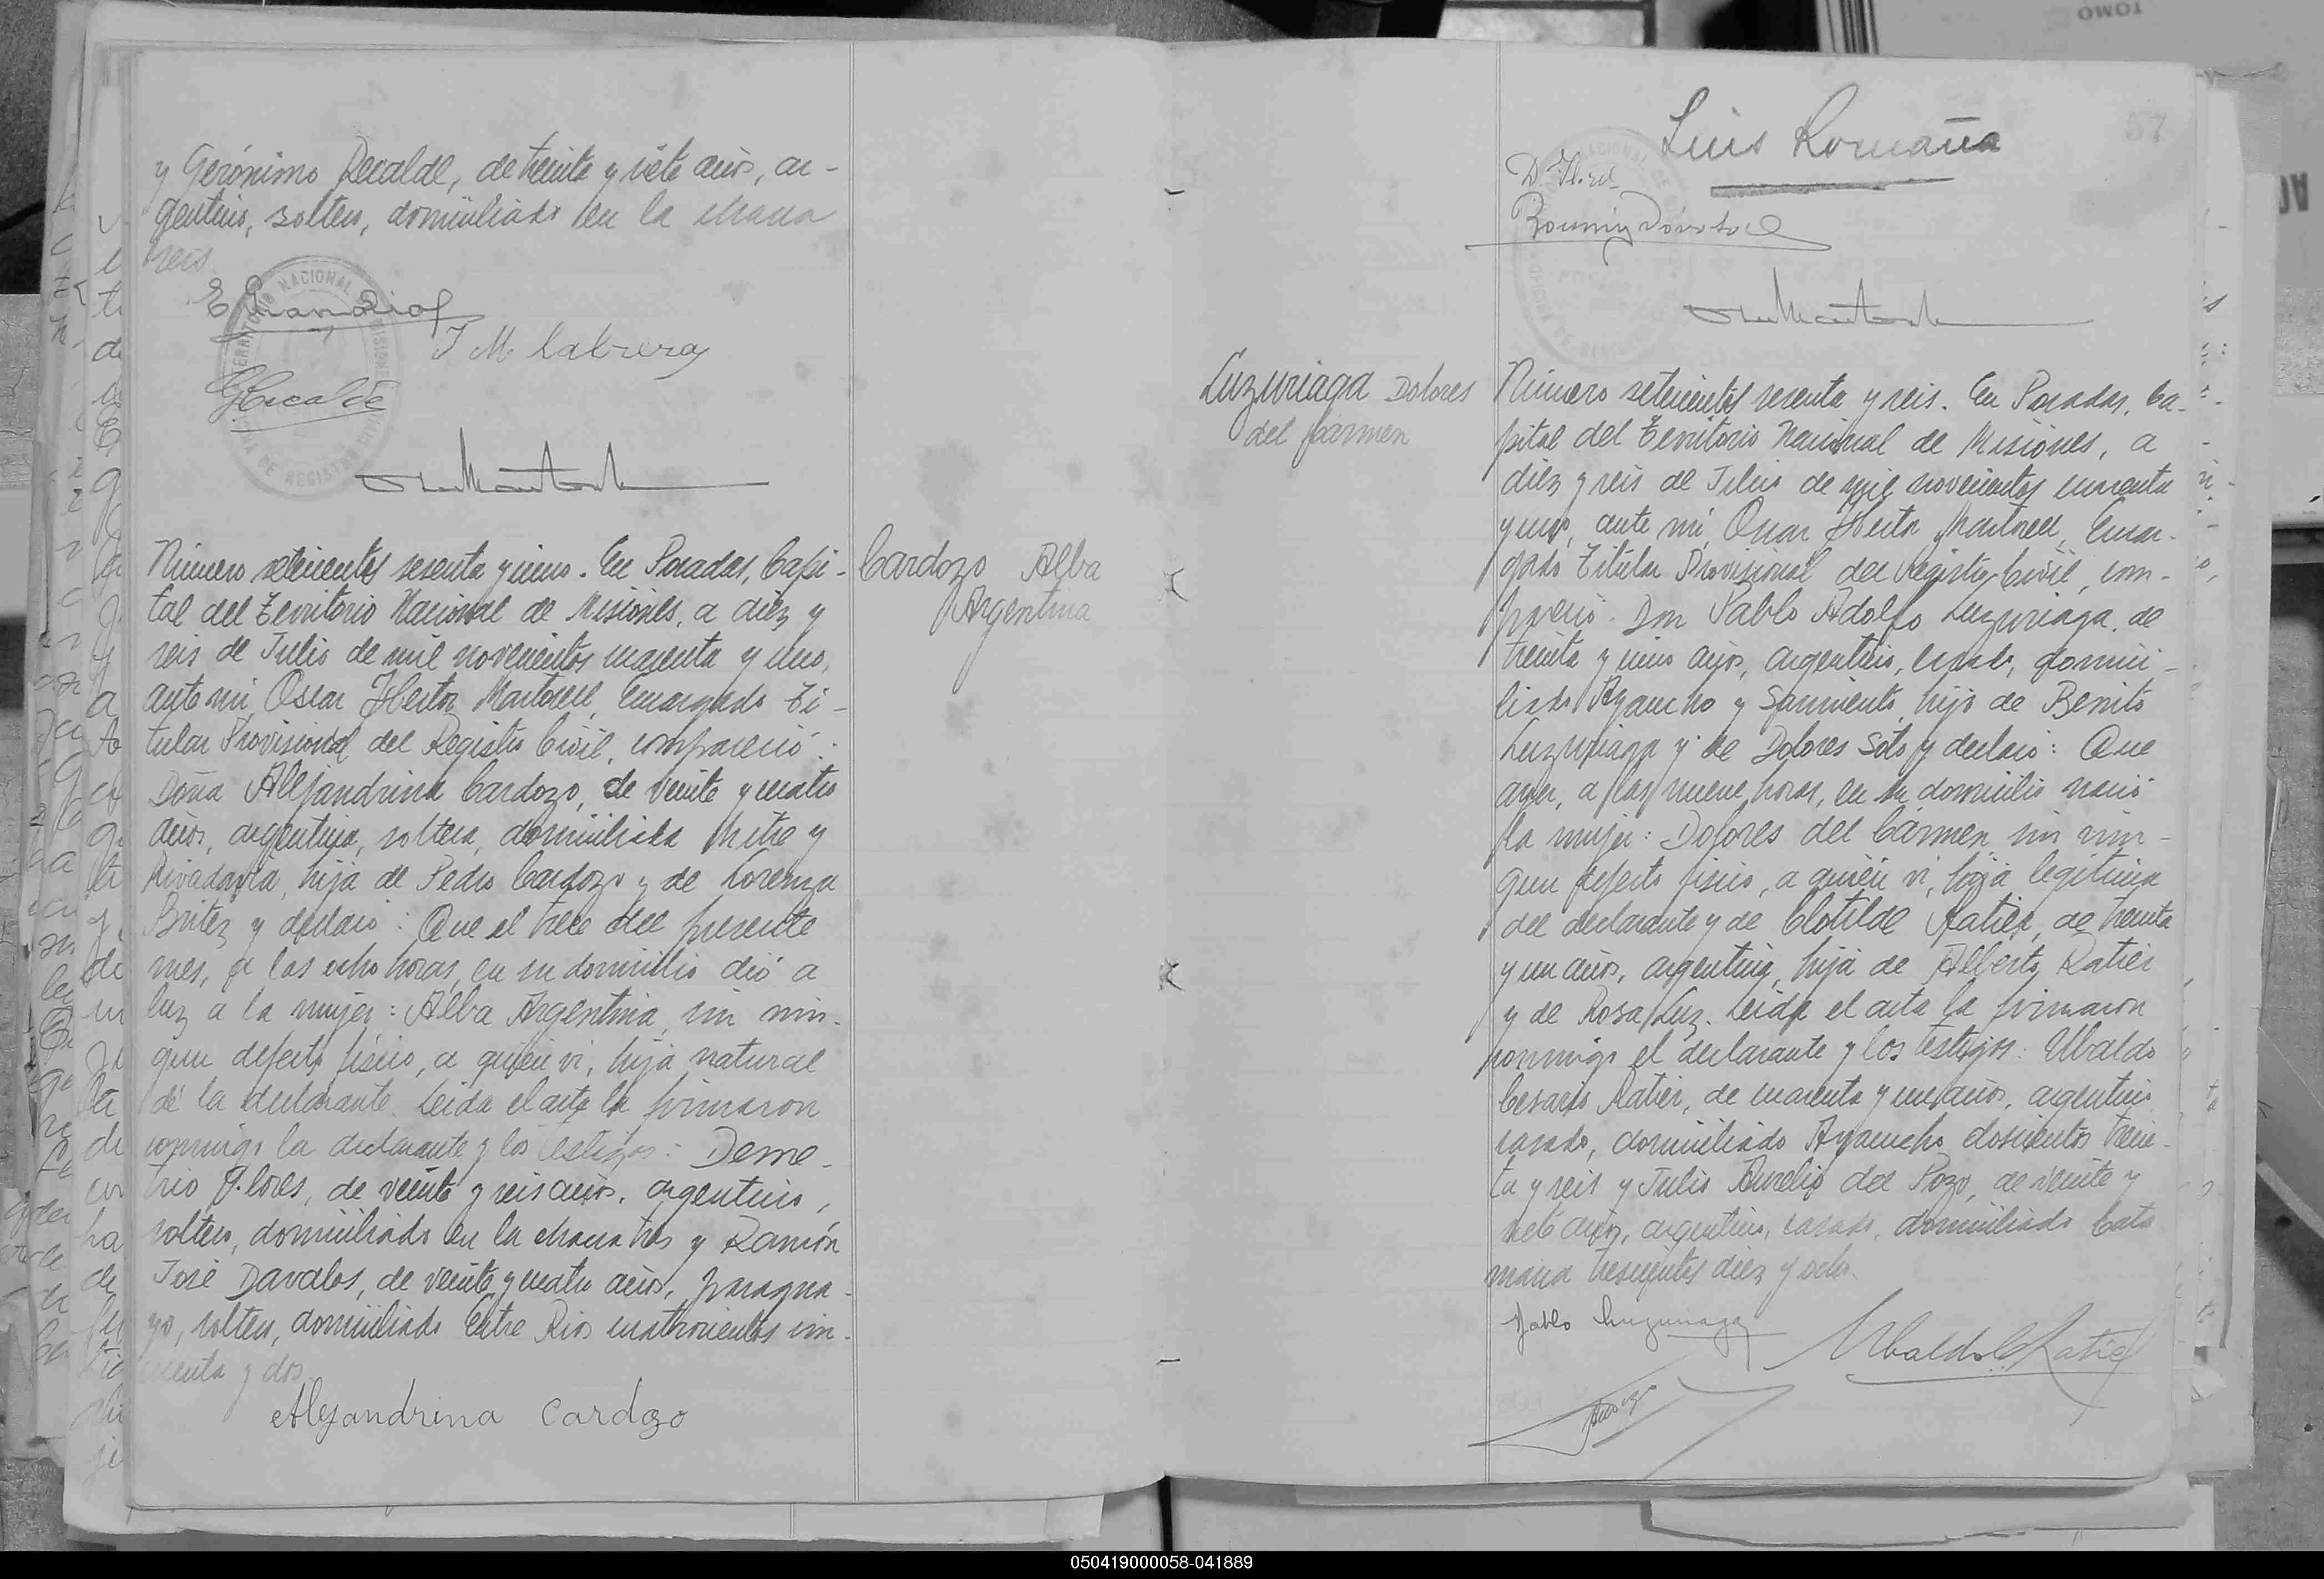 y Gerónimo Recalde, de treinta y siete años, ar-
gentino, soltero, domiciliado en la chacra
seis
TERRITORIO NACIONAL DE MISIONES
OFICINA DE REGISTRO CIVIL
J M Cabrera
GRecalde
Número setecientos sesenta y cinco. En Posadas, Capi-
tal del Territorio Nacional de Misiones, a diez y
seis de Julio de mil novecientos cuarenta y uno,
ante mi, Oscar Hector Martorell, Encargado Ti-
tular Provisional del Registro Civil, compareció:
Doña Alejandrina Cardozo, de veinte y cuatro
años, argentina, soltera, domiciliada Mitre y
Rivadavia, hija de Pedro Cardozo y de Lorenza
Britez y declaró: Que el trece del presente
mes, a las ocho horas, en su domicilio dió a
luz a la mujer: Alba Argentina, sin nin-
gun defecto fisico, a quien vi, hija natural
de la declarante. Leida el acta la firmaron
conmigo la declarante y los testigos: Deme-
trio Flores, de veinte y seis años, argentino,
soltero, domiciliado en la chacra tres y Ramón
José Davalos, de veinte y cuatro años, paragua-
yo, soltero, domiciliado Entre Rios cuatrocientos cin-
cuenta y dos.
Alejandrina Cardozo
Cardozo Alba
Argentina
TOMO
57
Luis Romaña
Luzuriaga Dolores
del Carmen
Número setecientos sesenta y seis. En Posadas, Ca-
pital del Territorio Nacional de Misiones, a
diez y seis de Julio de mil novecientos cuarenta
y uno, ante mi, Oscar Hector Martorell, Encar-
gado Titular Provisional del Registro Civil, com-
pareció: Don Pablo Adolfo Luzuriaga, de
treinta y cinco años, argentino, casado, domici-
liado Ayacucho y Sarmiento, hijo de Benito
Luzuriaga y de Dolores Soto y declaró: Que
ayer, a las nueve horas, en su domicilio nació
la mujer: Dolores del Carmen, sin nin-
gun defecto fisico, a quien vi, hija legitima
del declarante y de Clotilde Ratier, de treinta
y un años, argentina, hija de Alberto Ratier
y de Rosa Luz. Leida el acta la firmaron
conmigo el declarante y los testigos: Ubaldo
Cesareo Ratier, de cuarenta y un años, argentino
casado, domiciliado Ayacucho doscientos trein-
ta y seis y Julio Aurelio del Pozo, de veinte y
siete años, argentino, casado, domiciliado Cata
marca trescientos diez y ocho.
Pablo Luzuriaga
Ubaldo C Ratier
050419000058-041889